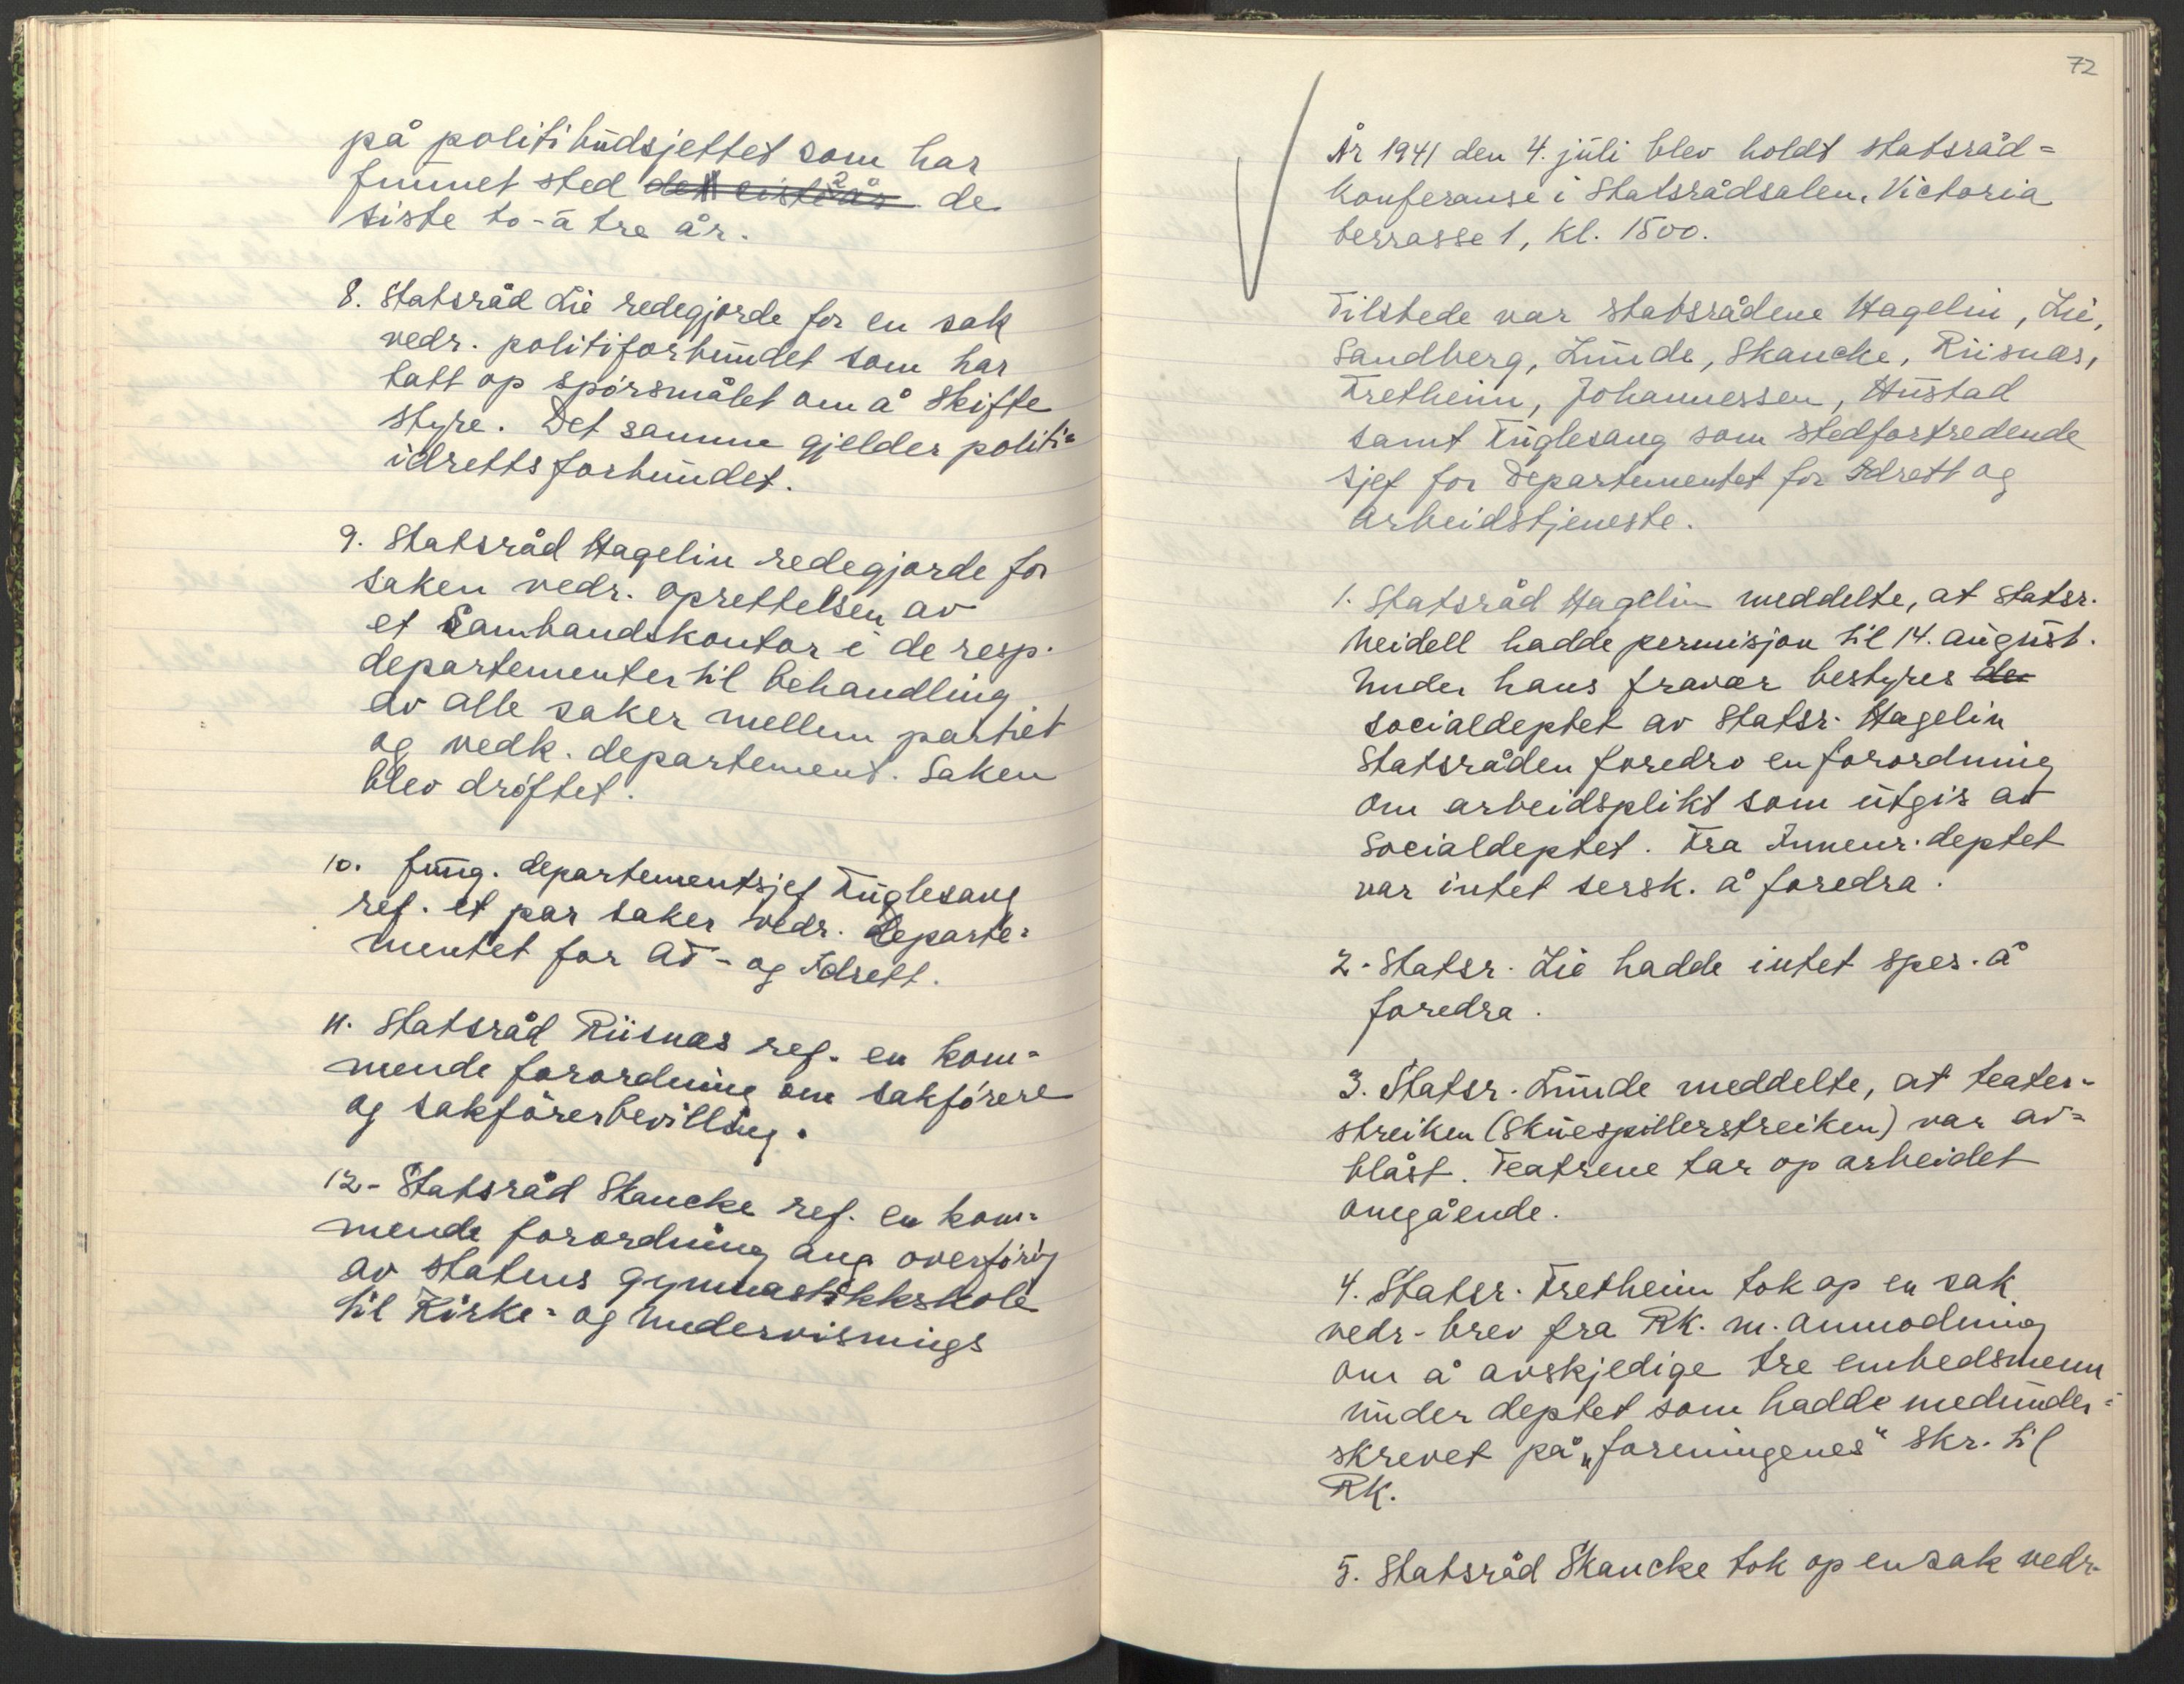 på politibudsjettet som har
funnet sted de
siste to-à tre år.
8. Statsråd Lie redegjorde for en sak
vedr. politiforbundet som har
tatt op spørsmålet om å skifte
styre. Det samme gjelder politi=
idrettsforbundet.
9. Statsråd Hagelin redegjorde for
saken vedr. oprettelsen av
et Sambandskontor i de resp.
departementer til behandling
av alle saker mellem partiet
og vedk. departement. Saken
blev drøftet.
10. fung. departementsjef Fuglesang
ref. et par saker vedr. departe=
mentet for AT- og Idrett.
11. Statsråd Riisnæs ref. en kom=
mende forordning om sakførere
og sakførerbevilling.
12- Statsråd Skancke ref. en kom=
mende forordning ang overføring
av statens gymnastikkskole
til Kirke= og Undervisnings
72
År 1941 den 4. juli blev holdt statsråd=
konferanse i Statsrådsalen, Victoria
terrasse 1, kl. 1500.
Tilstede var statsrådene Hagelin, Lie,
Sandberg, Lunde, Skancke, Riisnæs,
Fretheim, Johannessen, Hustad
samt Fuglesang som stedfortredende
sjef for Departementet for Idrett og
Arbeidstjeneste.
1. Statsråd Hagelin meddelte, at statsr.
Meidell hadde permisjon til 14. august.
Under hans fravær bestyres der
socialdeptet av Statsr. Hagelin
Statsråden foredro en forordning
om arbeidsplikt som utgis av
Socialdeptet. Fra Innenr.deptet
var intet sersk. å foredra.
2- Statsr. Lie hadde intet spes. å
foredra.
3. Statsr. Lunde meddelte, at teater-
streiken (Skuespillerstreiken) var av=
blåst. Teatrene tar op arbeidet
omgående.
4. Statsr. Fretheim tok op en sak
vedr- brev fra RK. m. anmodning
om å avskjedige tre embedsmenn
under deptet som hadde medunder=
skrevet på „foreningenes" skr. til
RK.
5. Statsråd Skancke tok op en sak vedr.